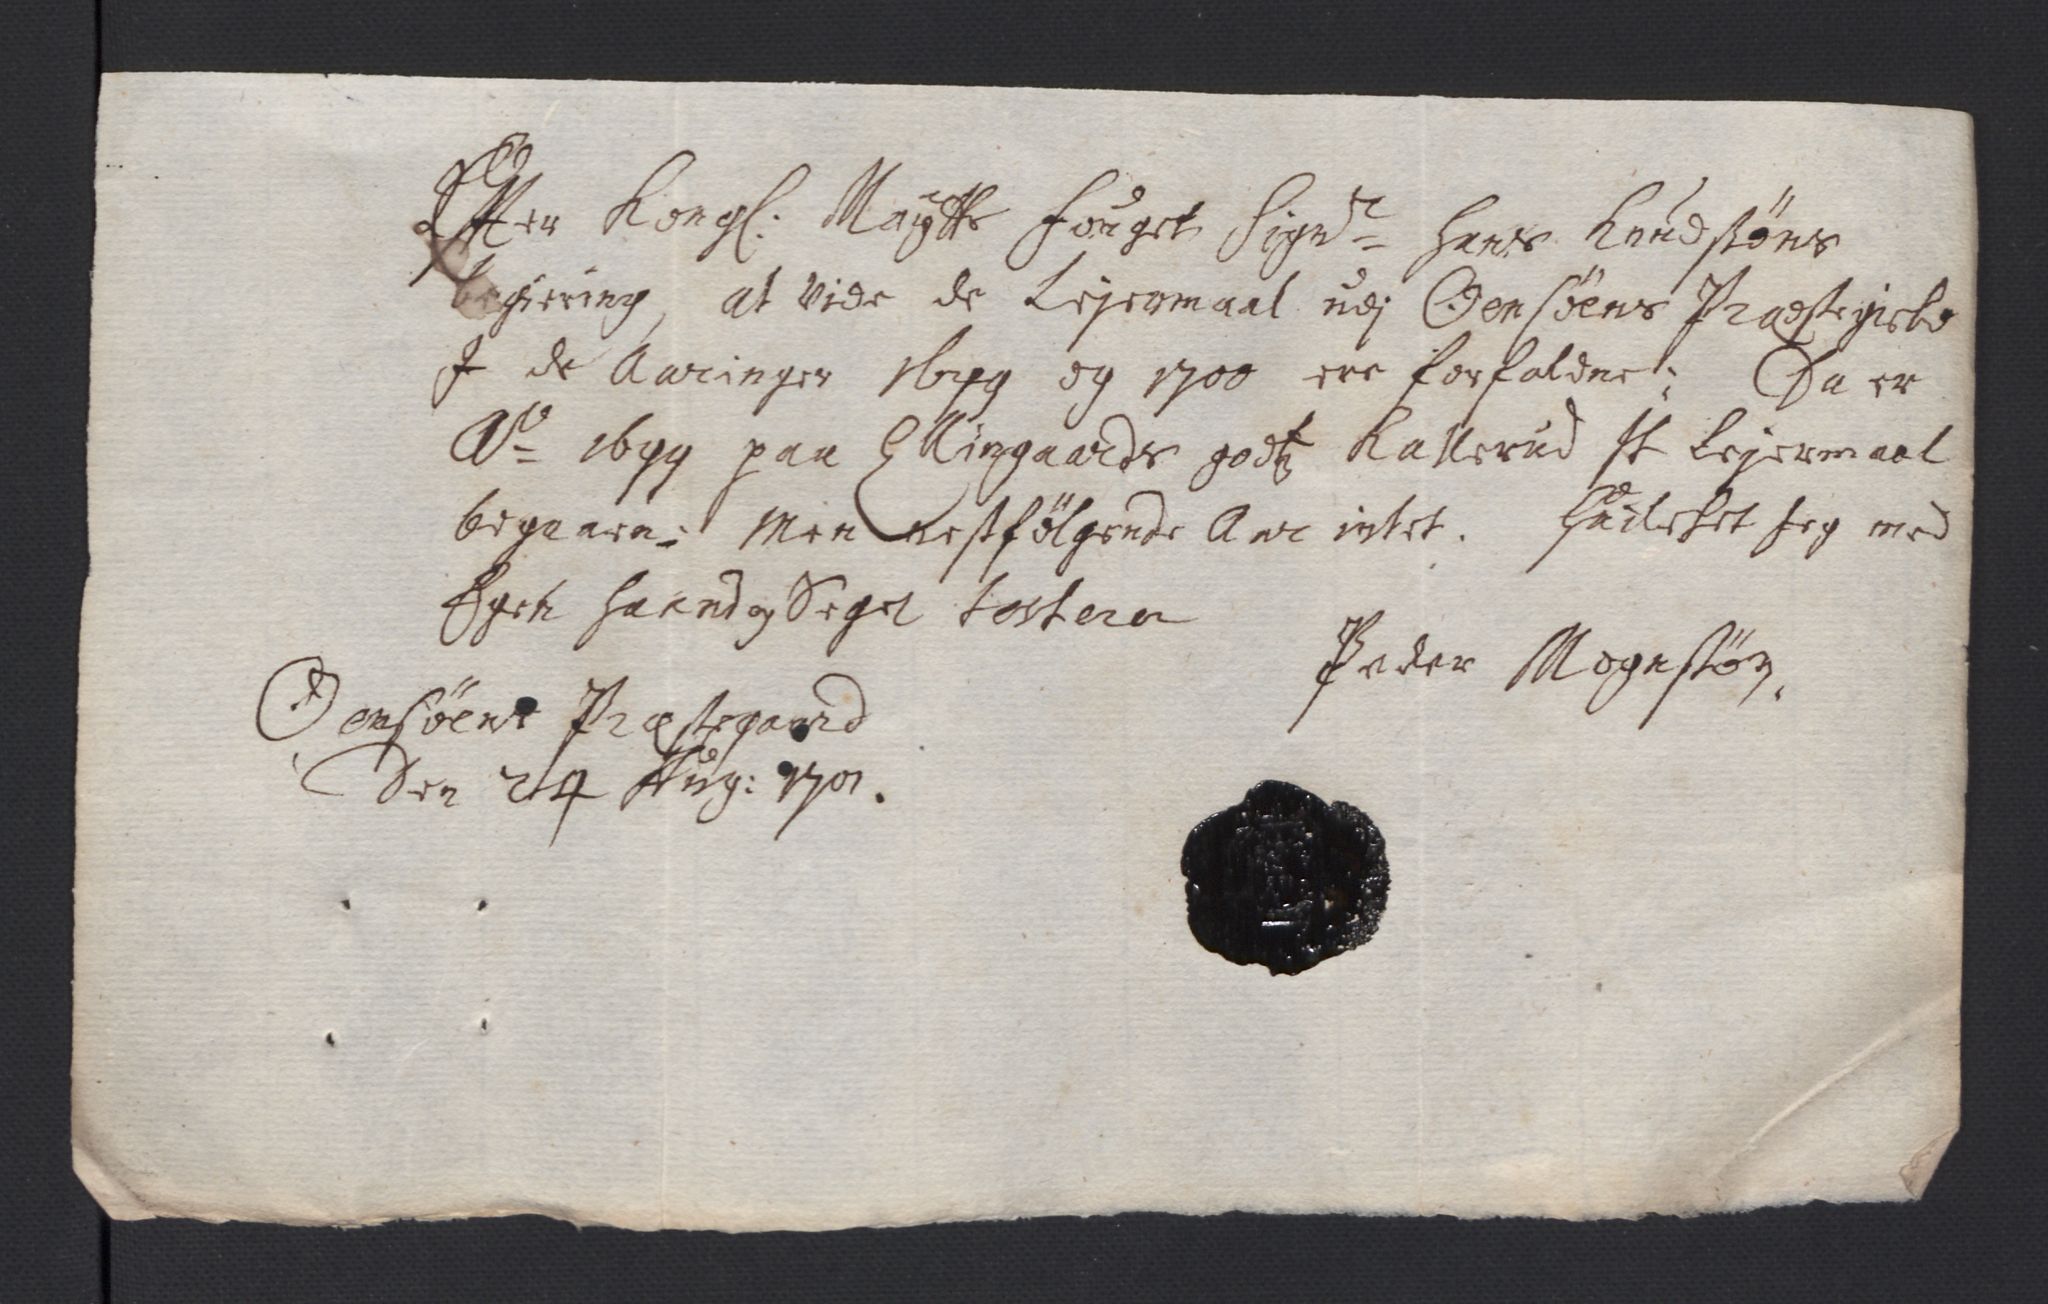 Efter Kongl: Maÿtts Fouget Signr Hans Knudsøns
begiering, at vide de Lejermaal udj Oensöens Præstegield
I de Aaringer 1699 og 1700 ere forfaldne; Da er
Ao 1699 paa Ellingaards godtz Kallerud et Lejermaal
begaaen; Men nestfølgende Aar intet. Huilcket ieg med
Egen Haand og Segel testerer
Peder Mognsøn,
Oensöens Præstegaard
Den 24 Aug: 1701.